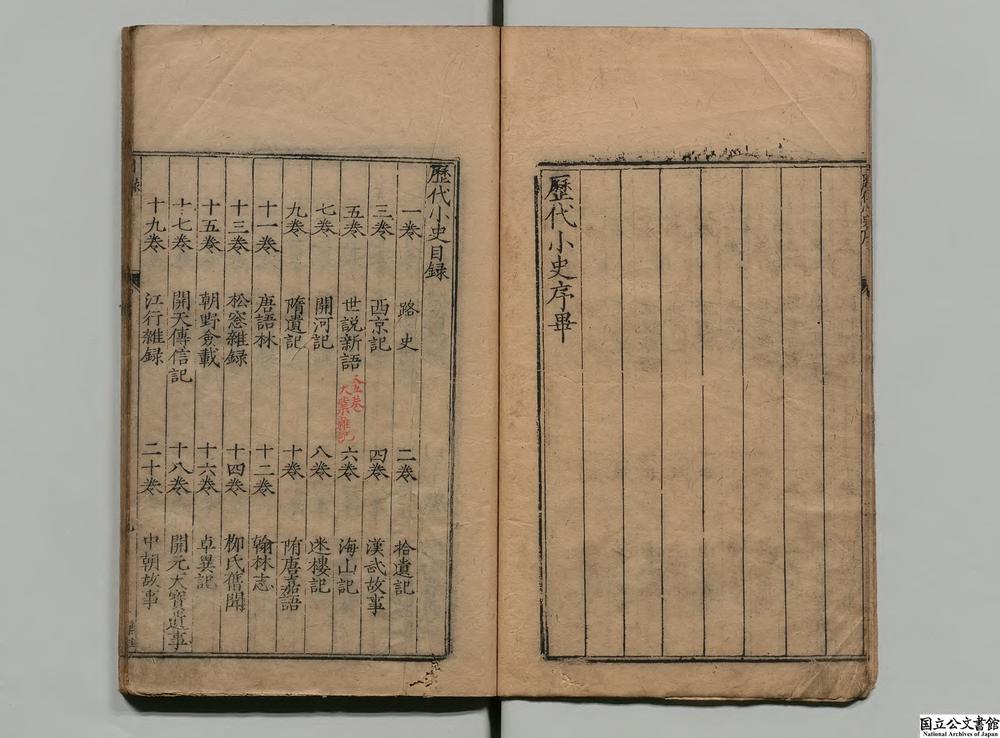 歷代小史序畢
歷代小史目録
一卷 路史 二卷 拾遺記
三卷 西京記 四卷 漢武故事
五卷 世説新語 六卷 海山記
大業雜記
七卷 開河記 八卷 迷樓記
九卷 隋遺記 十卷 隋唐嘉語
十一卷 唐語林 十二卷 翰林志
十三卷 松窓雜録 十四卷 柳氏舊聞
十五卷 朝野僉載 十六卷 卓異記
十七卷 開天傳信記 十八卷 開元天寶遺事
十九卷 江行雜録 二十卷 中朝故事
国立公文書館
National Archives of Japan